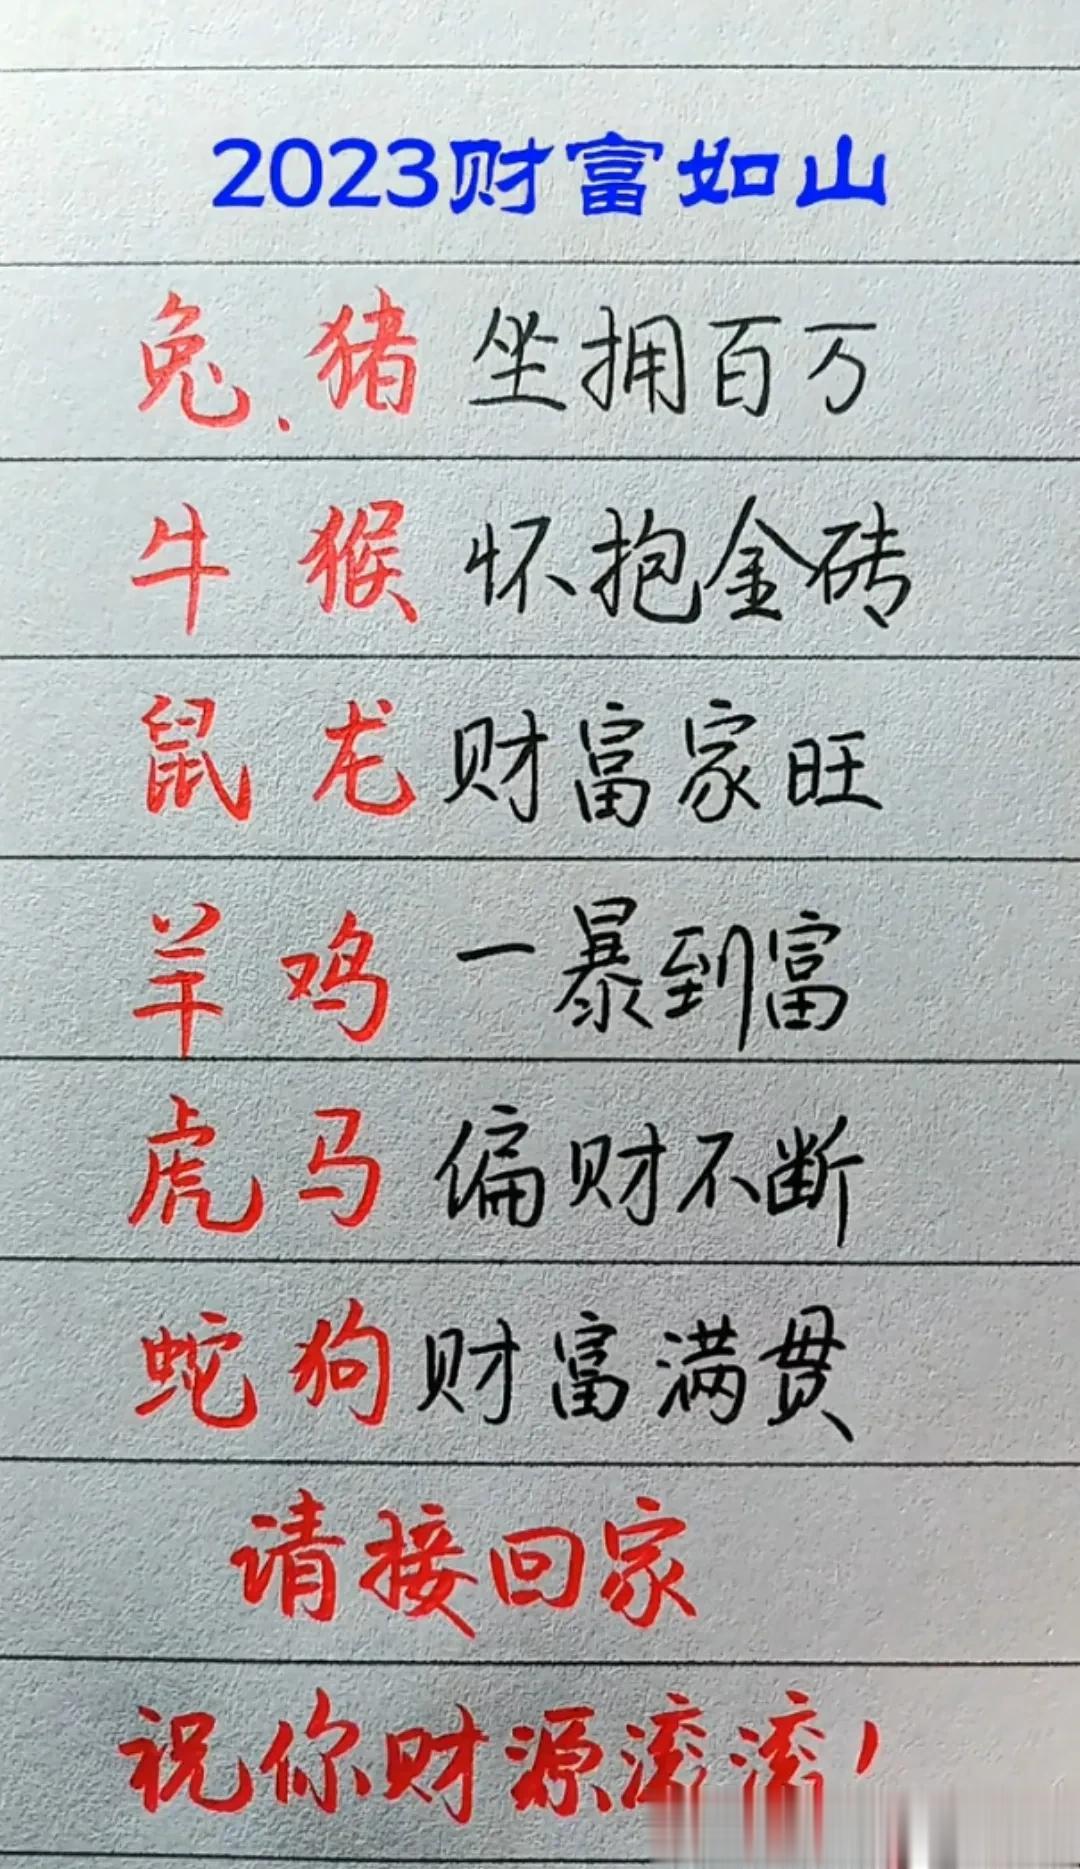 2023财富如山
兔、猪 坐拥百万
牛 猴 怀抱金砖
鼠 龙 财富家旺
羊 鸡 一暴到富
虎 马 偏财不断
蛇 狗 财富满贯
请接回家
祝你财源滚滚!